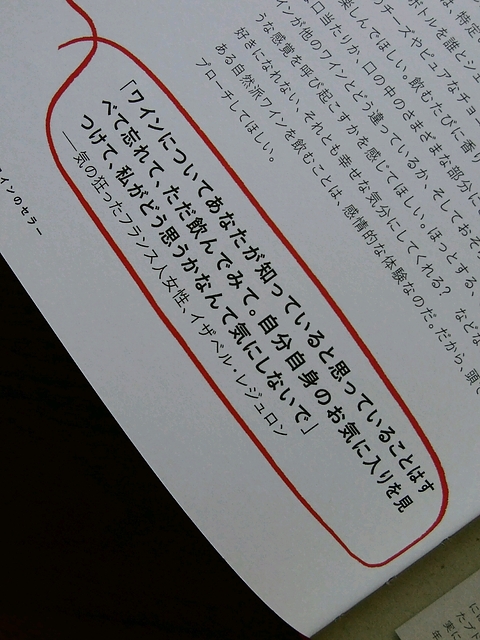 は、特定の
ボトルを誰とシェ
チーズやピュアなチョ
楽しんでほしい。飲むたびに香り
な口当たりか、口の中のさまざまな部分に
インが他のワインとどう違っているか、そしておそ
うな感覚を呼び起こすかを感じてほしい。ほっとする、
好きになれない、それとも幸せな気分にしてくれる？ などな
ある自然派ワインを飲むことは、感情的な体験なのだ。だから、頭で
プローチしてほしい。
「ワインについてあなたが知っていると思っていることはす
べて忘れて、ただ飲んでみて。自分自身のお気に入りを見
つけて、私がどう思うかなんて気にしないで」
──気の狂ったフランス人女性、イザベル・レジュロン
インのセラー